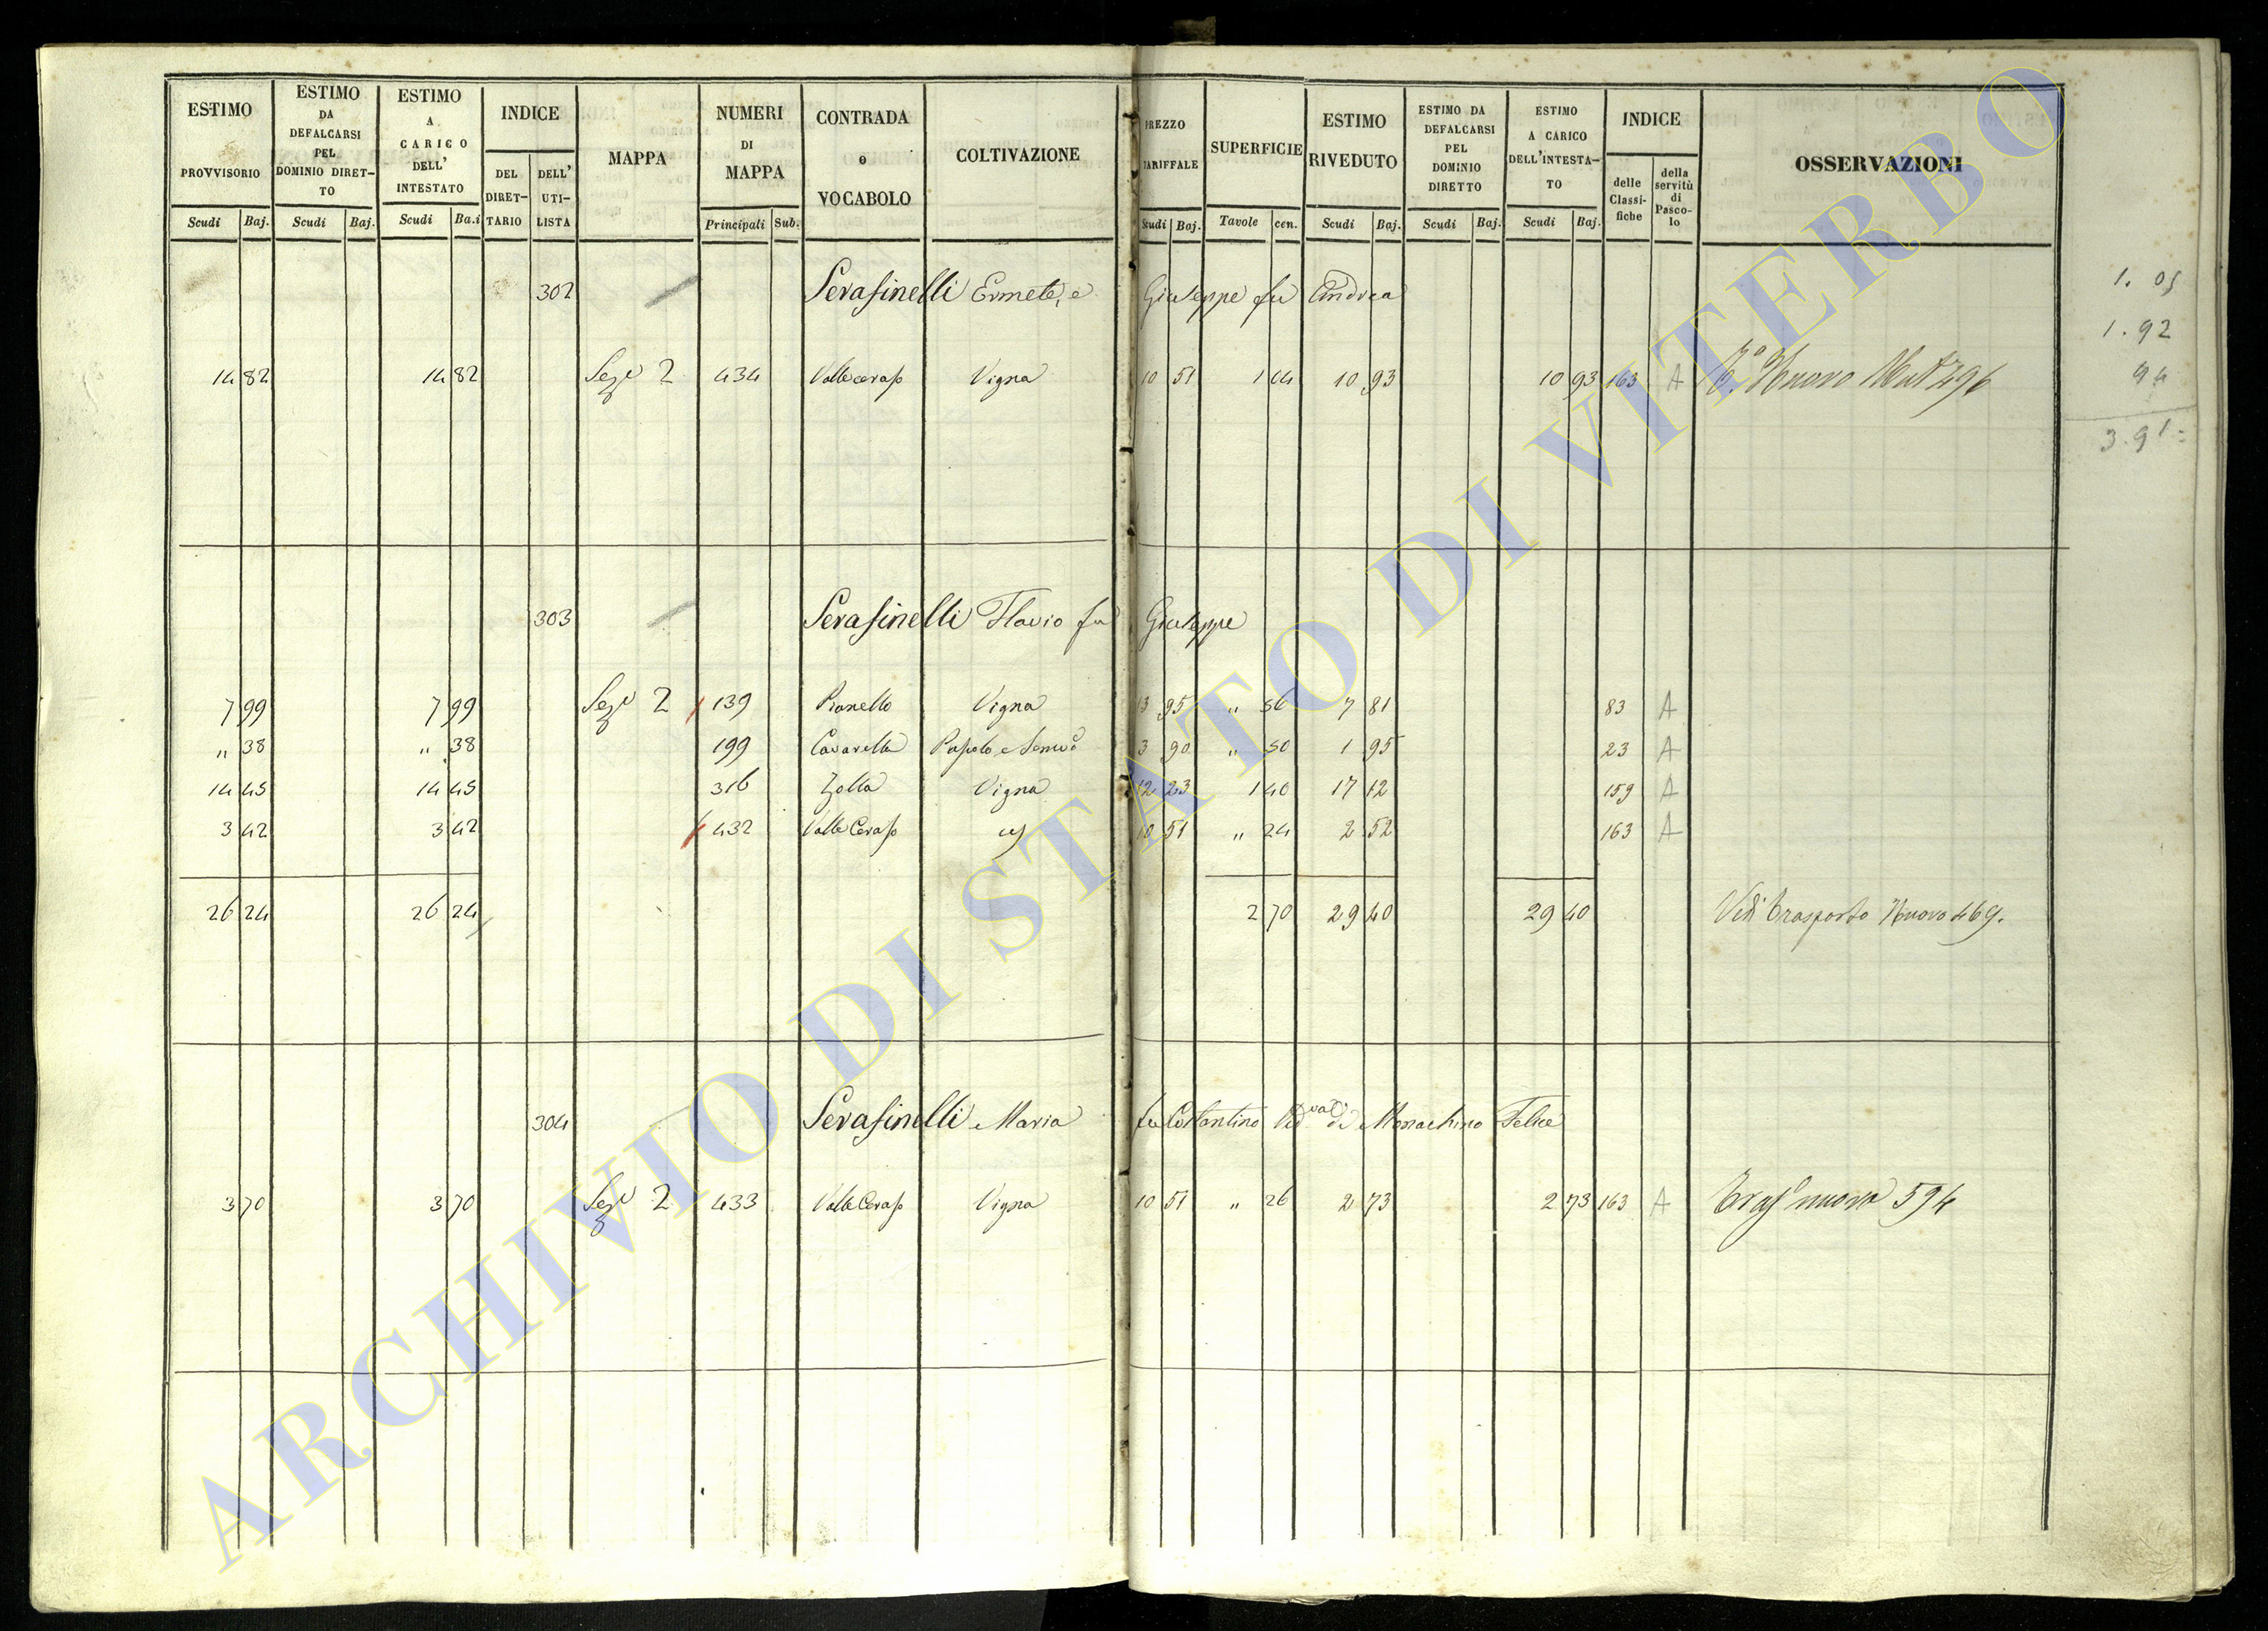 ESTIMO PROVVISORIO
ESTIMO DA DEFALCARSI PEL DOMINIO DIRET-TO
ESTIMO A CARICO DELL' INTESTATO
INDICE
DEL DIRET-TARIO
DELL' UTI-LISTA
MAPPA
NUMERI DI MAPPA
CONTRADA o VOCABOLO
COLTIVAZIONE
PREZZO TARIFFALE
SUPERFICIE
ESTIMO RIVEDUTO
ESTIMO DA DEFALCARSI PEL DOMINIO DIRETTO
ESTIMO A CARICO DELL'INTESTA-TO
INDICE
delle Classi-fiche
della servitù di Pasco-lo
OSSERVAZIONI
Scudi Baj. Scudi Baj. Scudi Ba.i Principali Sub. Scudi Baj. Tavole cen. Scudi Baj. Scudi Baj. Scudi Baj.
302 Serafinelli Ermete, e Giuseppe fu Andrea
14 82 14 82 Sez.e 2 434 Valle ceraso Vigna 10 51 1 04 10 93 10 93 163 A Nuovo 496
303 Serafinelli Flavio fu Giuseppe
7 99 7 99 Sez.e 2 139 Pianello Vigna 13 95 " 56 7 81 83 A
" 38 " 38 199 Cavarella 3 90 " 50 1 95 23 A
14 45 14 45 316 Zolla Vigna 12 23 1 40 17 12 159 A
3 42 3 42 432 Valle Ceraso 10 51 " 24 2 52 163 A
26 24 26 24 2 70 29 40 29 40 Vedi trasporto Nuovo 469.
304 Serafinelli Maria fu Costantino Ved.va di Monachino Felice
3 70 3 70 Sez.e 2 433 Valle Ceraso Vigna 10 51 " 26 2 73 2 73 163 A Trasp.o nuovo 594
1. 05
1. 92
94
3. 91
ARCHIVIO DI STATO DI VITERBO